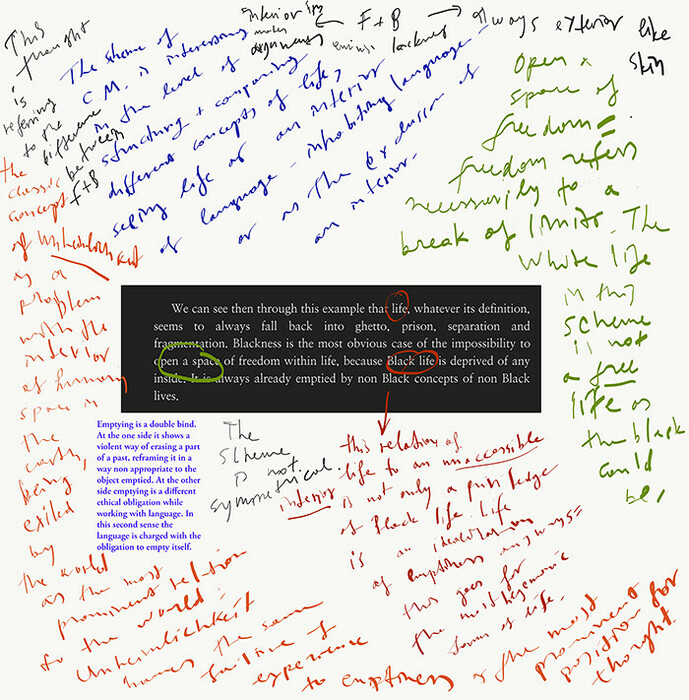 This
thought
is
referring
to the
difference
between
F+B
interior
makes
arguments
← F + B →
always exterior like
skin
The scheme of
C.M. is interesting
in the level of
structuring + comparing
different concepts of life,
seeing life as an interior
of language - inhabiting language -
or as the exclusion of
an interior.
Open a
space of
freedom =
freedom refers
necessarily to a
break of limits. The
white life
in this
scheme
is not
a free
life as
the black
could
be,
We can see then through this example that life, whatever its definition,
seems to always fall back into ghetto, prison, separation and
fragmentation. Blackness is the most obvious case of the impossibility to
open a space of freedom within life, because Black life is deprived of any
inside. It is always already emptied by non Black concepts of non Black
lives.
Emptying is a double bind.
At the one side it shows a
violent way of erasing a part
of a past, reframing it in a
way non appropriate to the
object emptied. At the other
side emptying is a different
ethical obligation while
working with language. In
this second sense the
language is charged with the
obligation to empty itself.
The
scheme
is not
symmetrical.
this relation of
life to an unaccessible
interior is not only a
of Black life. life
is an
of emptiness anyways =
this goes for
the most hegemonic
forms of life.
the
classic
concept
of Unheimlichkeit
as a
problem
with the
interior
of human
space in
the
earth,
being
exiled
by
the world
as the most
prominent relation
to the world.
Unheimlichkeit
the same
failure of
experience
to emptiness as the most
prominent
position for
thought